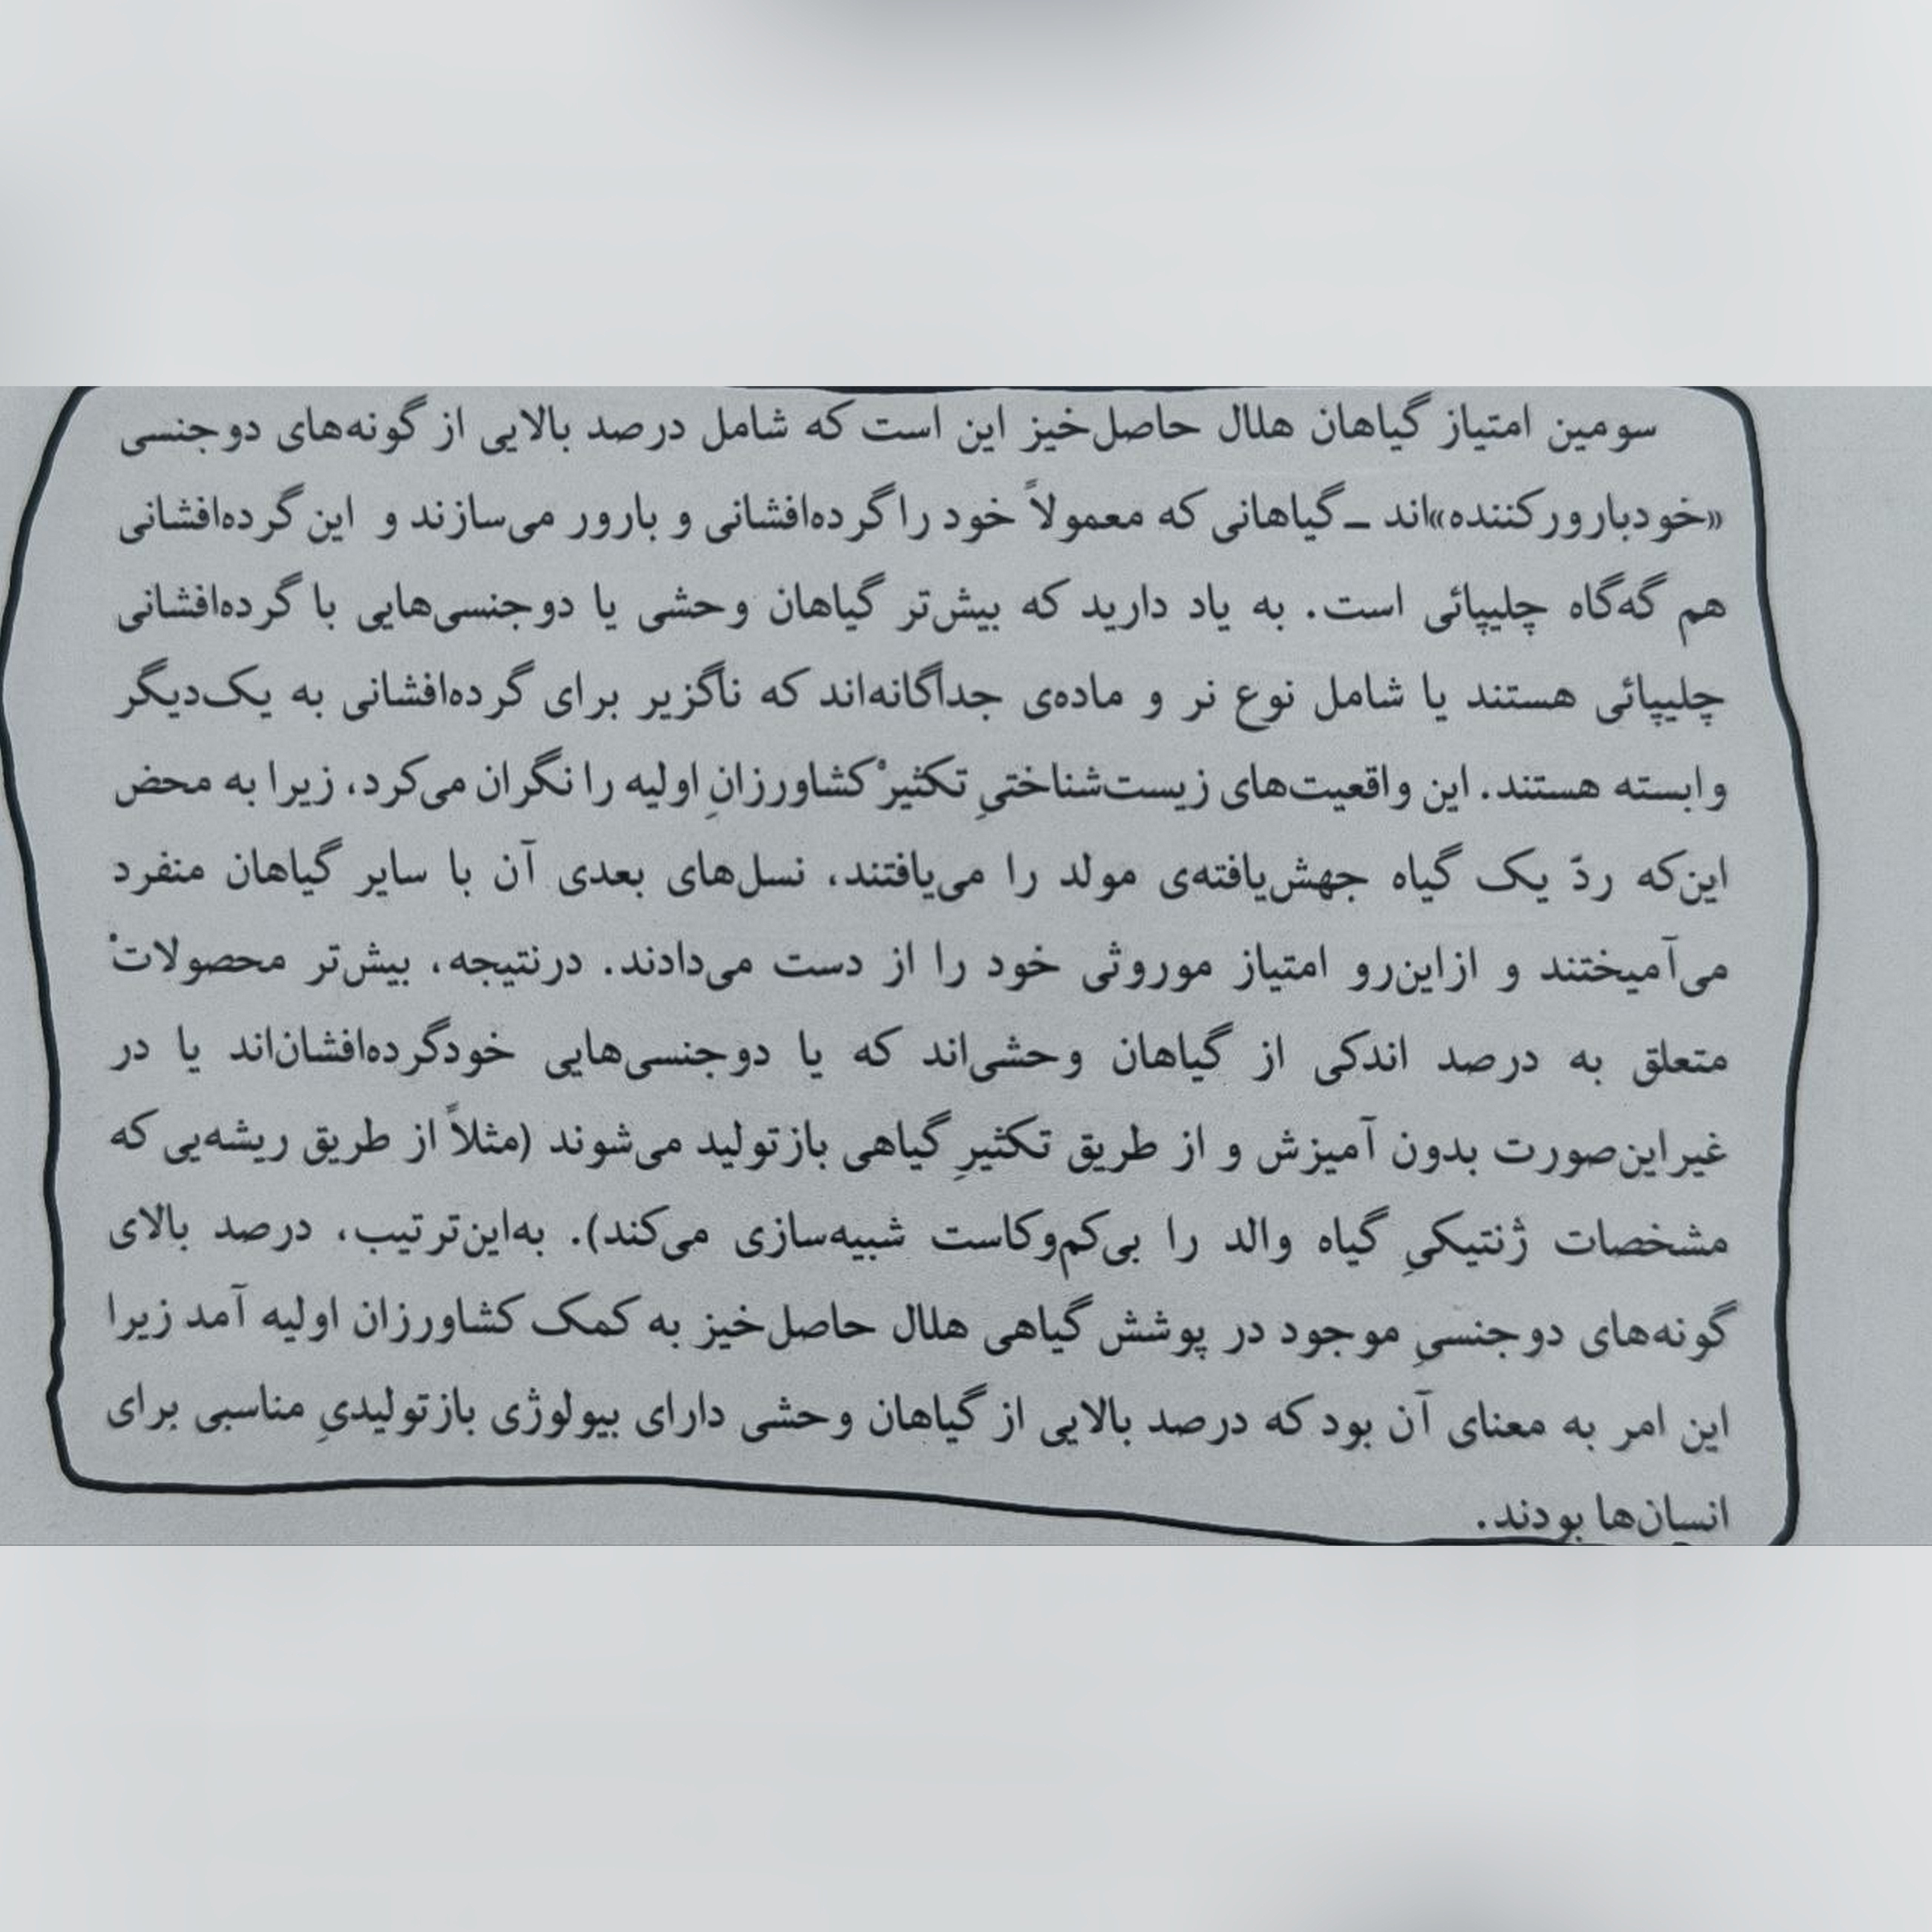 سومین امتیاز گیاهان هلال حاصل‌خیز این است که شامل درصد بالایی از گونه‌های دوجنسی
«خودبارورکننده»اند ـ گیاهانی که معمولاً خود را گرده‌افشانی و بارور می‌سازند و این گرده‌افشانی
هم گه‌گاه چلیپائی است. به یاد دارید که بیش‌تر گیاهان وحشی یا دوجنسی‌هایی با گرده‌افشانی
چلیپائی هستند یا شامل نوع نر و ماده‌ی جداگانه‌اند که ناگزیر برای گرده‌افشانی به یک‌دیگر
وابسته هستند. این واقعیت‌های زیست‌شناختیِ تکثیرْ کشاورزانِ اولیه را نگران می‌کرد، زیرا به محض
این‌که ردّ یک گیاه جهش‌یافته‌ی مولد را می‌یافتند، نسل‌های بعدی آن با سایر گیاهان منفرد
می‌آمیختند و ازاین‌رو امتیاز موروثی خود را از دست می‌دادند. درنتیجه، بیش‌تر محصولاتْ
متعلق به درصد اندکی از گیاهان وحشی‌اند که یا دوجنسی‌هایی خودگرده‌افشان‌اند یا در
غیراین‌صورت بدون آمیزش و از طریق تکثیرِ گیاهی بازتولید می‌شوند (مثلاً از طریق ریشه‌یی که
مشخصات ژنتیکیِ گیاه والد را بی‌کم‌وکاست شبیه‌سازی می‌کند). به‌این‌ترتیب، درصد بالای
گونه‌های دوجنسیِ موجود در پوشش گیاهی هلال حاصل‌خیز به کمک کشاورزان اولیه آمد زیرا
این امر به معنای آن بود که درصد بالایی از گیاهان وحشی دارای بیولوژی بازتولیدیِ مناسبی برای
انسان‌ها بودند.